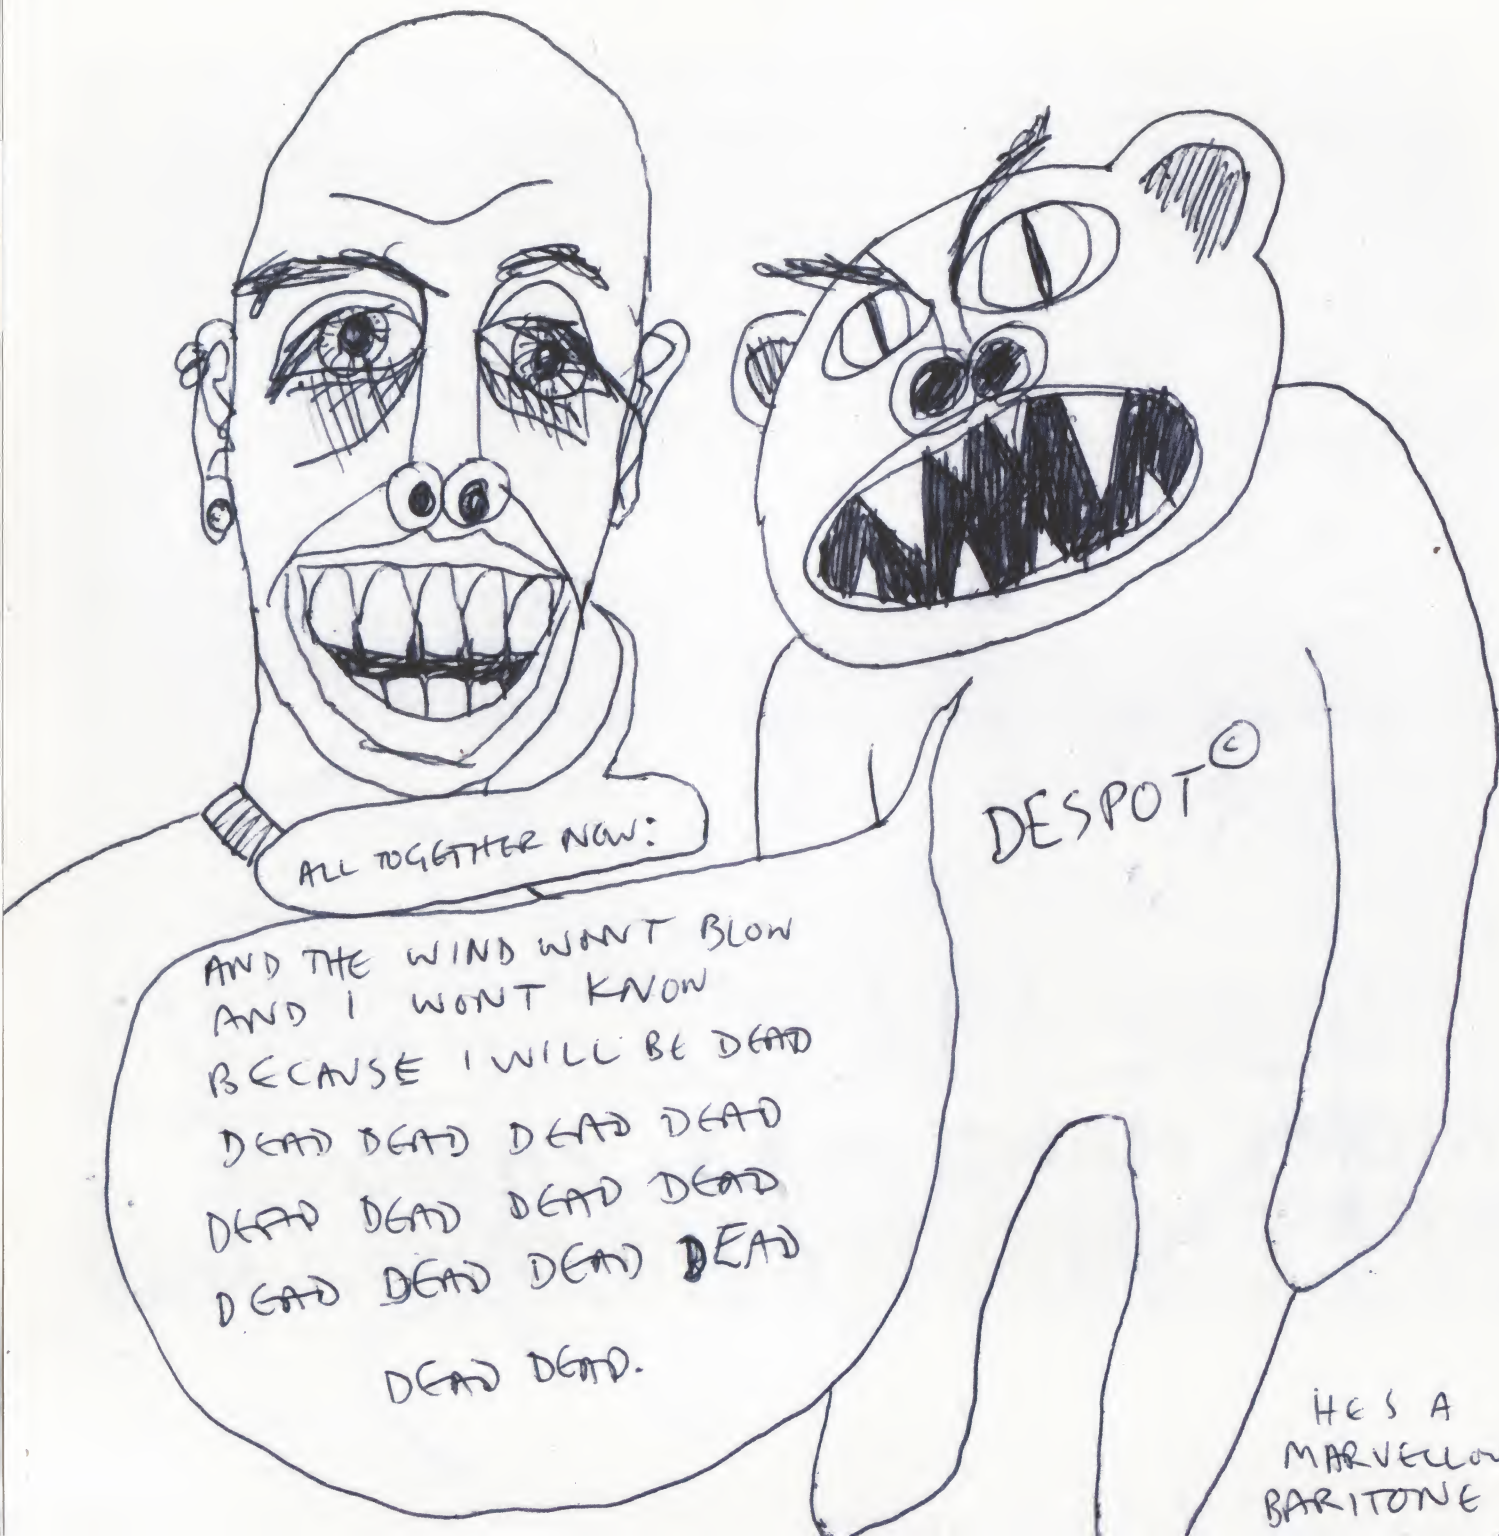 ALL TOGETHER NOW:
AND THE WIND WONT BLOW
AND I WONT KNOW
BECAUSE I WILL BE DEAD
DEAD DEAD DEAD DEAD
DEAD DEAD DEAD DEAD
DEAD DEAD DEAD DEAD
DEAD DEAD.
DESPOT©
HES A
MARVELLOU
BARITONE